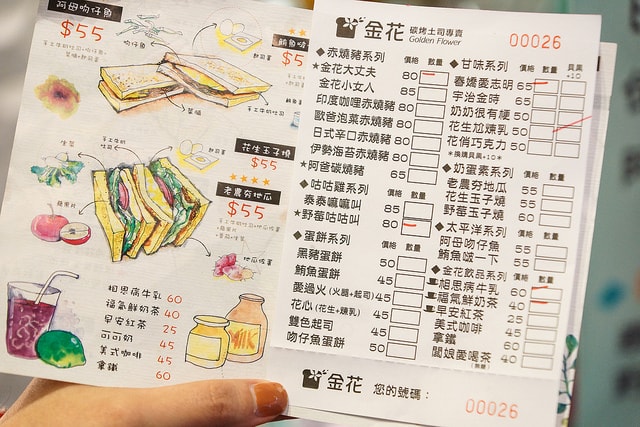 阿母吻仔魚
$55
手工牛奶吐司
吻仔魚
起司蛋
手工牛奶吐司
鮪魚
花生玉子燒
$55
老農夯地瓜
$55
生菜
手工牛奶吐司
起司蛋
蘋果片
地瓜佐蛋
相思病牛乳 60
福氣鮮奶茶 40
早安紅茶 25
可可奶 45
美式咖啡 45
拿鐵 60
金花 碳烤土司專賣
Golden Flower
00026
◆赤燒豬系列 價格 數量
★金花大丈夫 80
金花小女人 85
印度咖哩赤燒豬 80
歐爸泡菜赤燒豬 80
日式辛口赤燒豬 80
伊勢海苔赤燒豬 80
★阿爸碳燒豬 65
◆咕咕雞系列 價格 數量
泰泰嘛嘛叫 85
★野莓咕咕叫 80
◆蛋餅系列 價格 數量
黑豬蛋餅 50
鮪魚蛋餅 45
愛過火(火腿+起司) 45
花心(花生+煉乳) 45
雙色起司 45
吻仔魚蛋餅 50
◆甘味系列 價格 數量 貝果+10
春嬌愛志明 65
宇治金時 65
奶奶很有梗 50
花生尬煉乳 50
花俏巧克力 50
*換購貝果+10*
◆奶蛋素系列 價格 數量
老農夯地瓜 55
花生玉子燒 55
野莓玉子燒 60
◆太平洋系列 價格 數量
阿母吻仔魚 55
鮪魚啵一下 55
◆金花飲品系列 價格 數量
相思病牛乳 60
福氣鮮奶茶 40
早安紅茶 25
美式咖啡 45
拿鐵 60
闆娘愛喝茶 40
(無糖)
金花 您的號碼： 00026